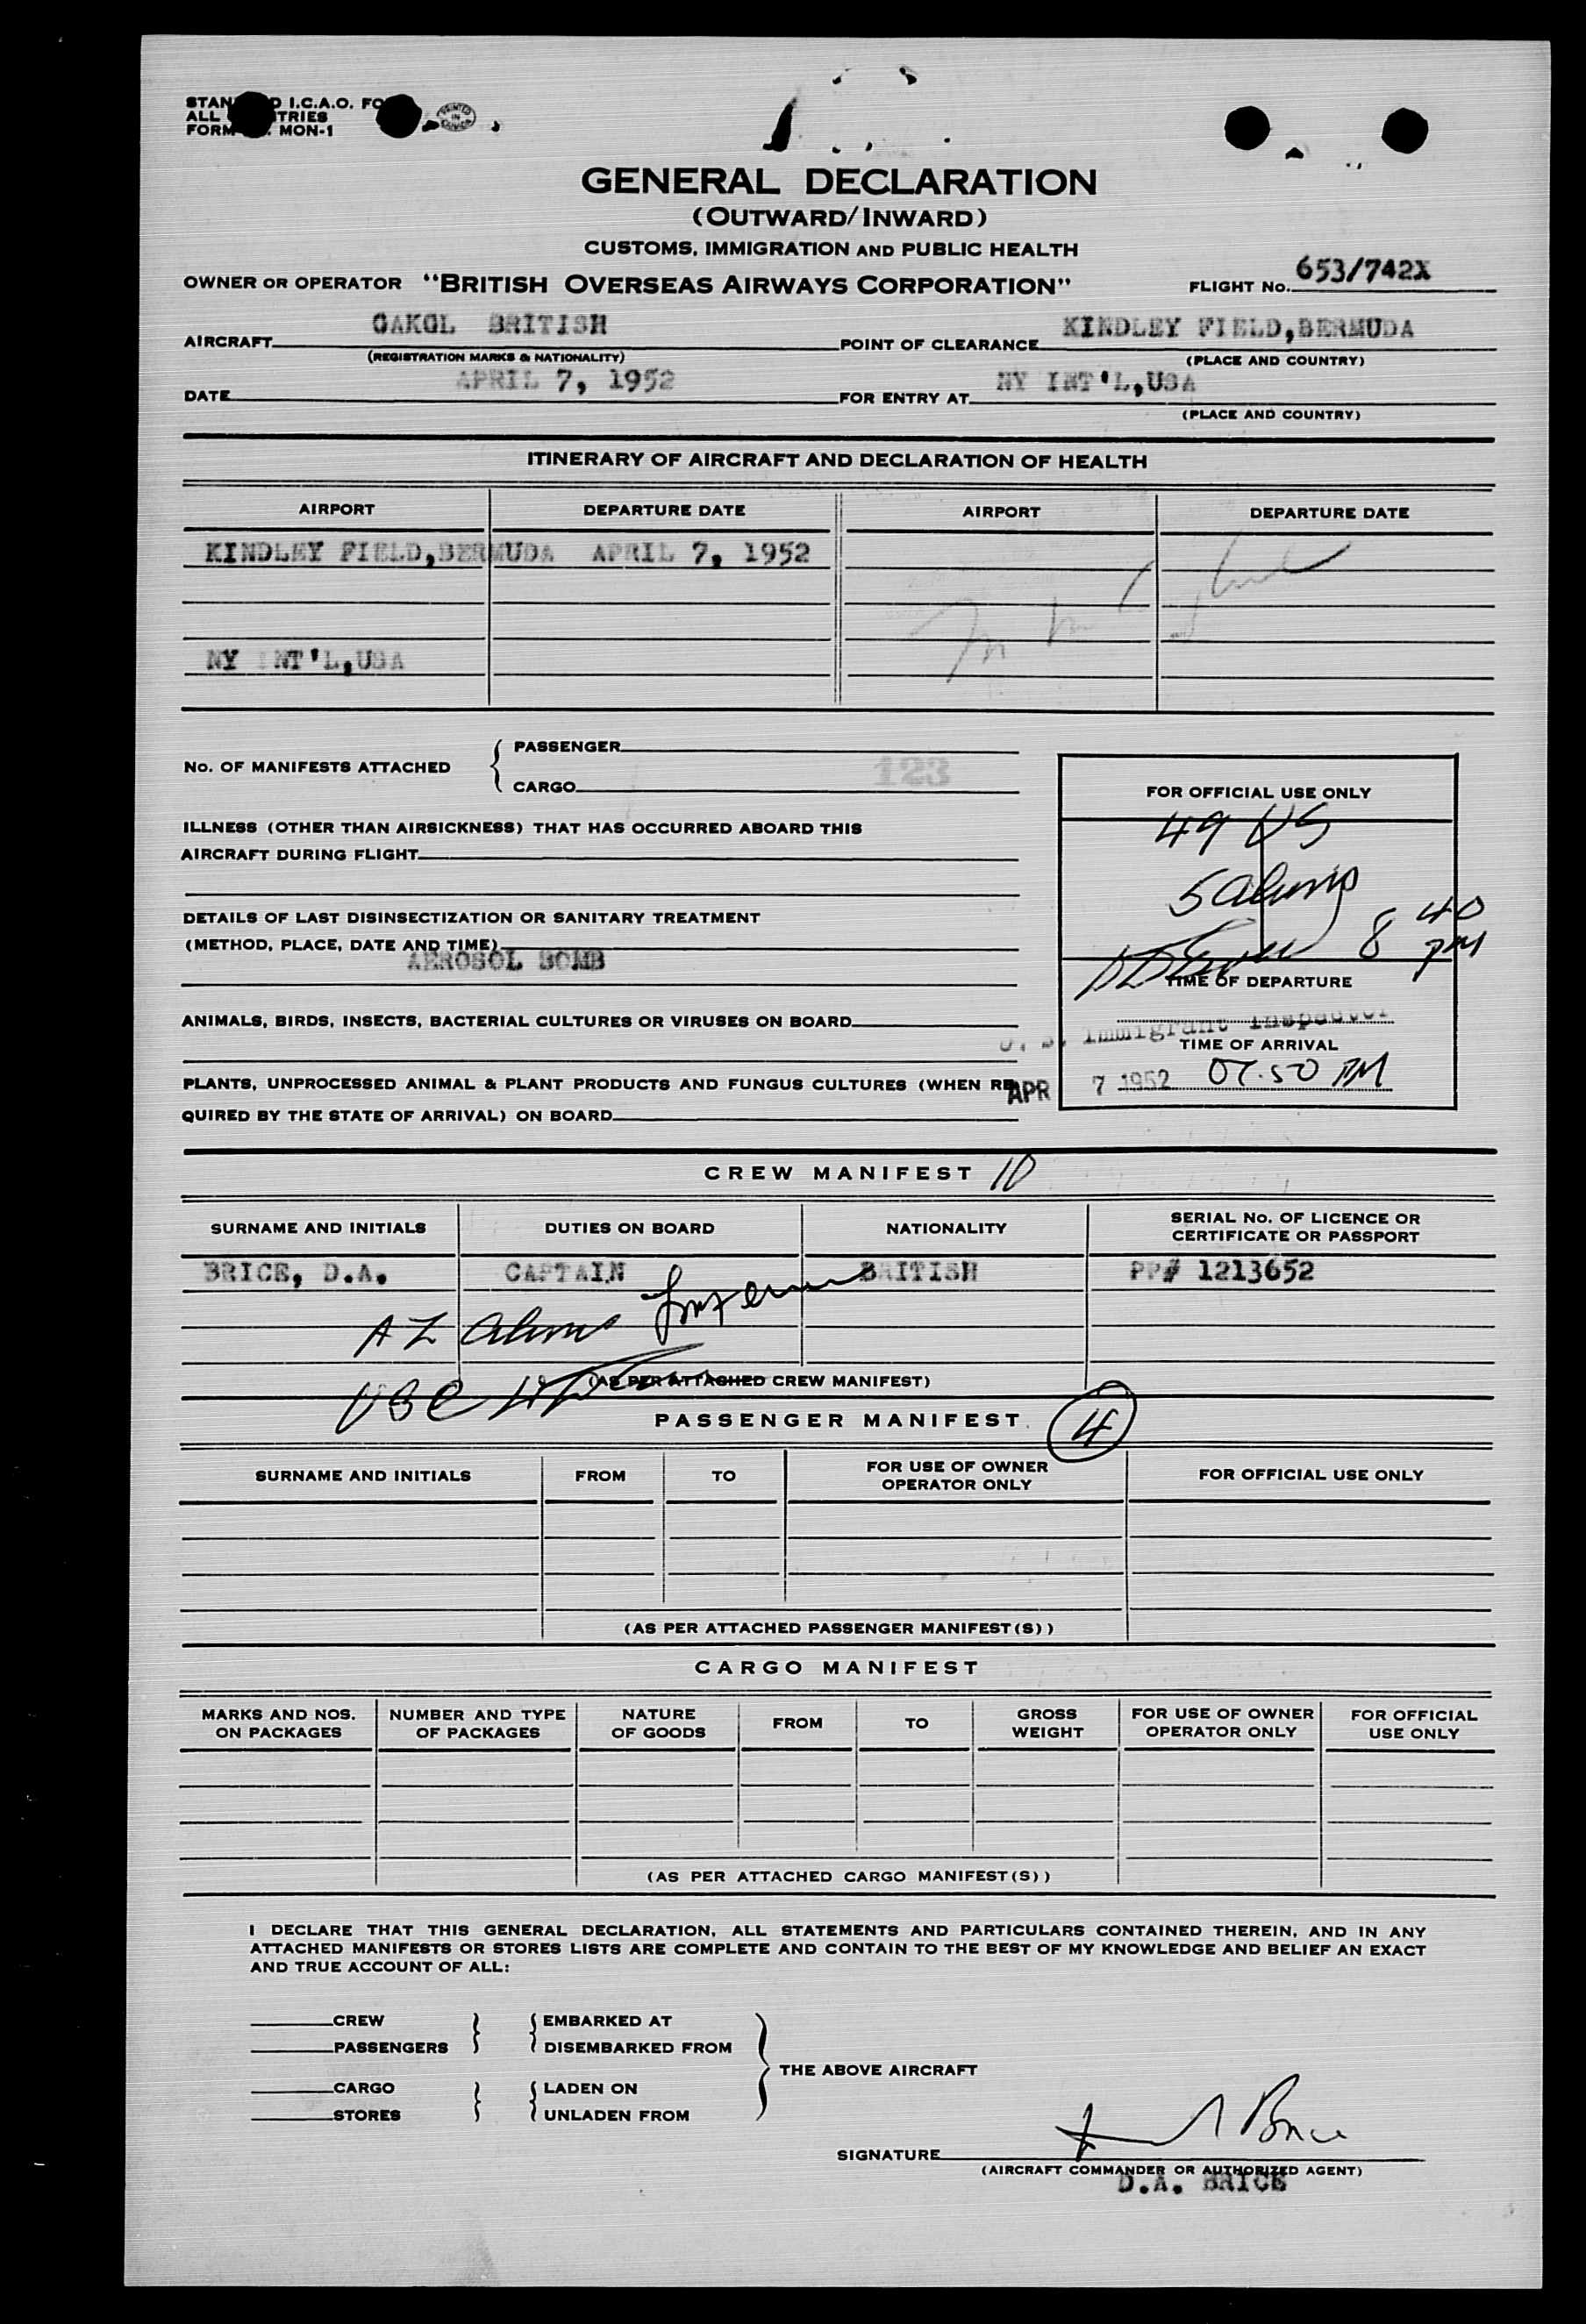 I.C.A.O.
ALL
MON-1
PRINTED IN
GENERAL DECLARATION
(OUTWARD/INWARD)
CUSTOMS, IMMIGRATION AND PUBLIC HEALTH
OWNER OR OPERATOR "BRITISH OVERSEAS AIRWAYS CORPORATION" FLIGHT No. 653/742X
AIRCRAFT GAKGL BRITISH POINT OF CLEARANCE KINDLEY FIELD,BERMUDA
(REGISTRATION MARKS & NATIONALITY) (PLACE AND COUNTRY)
DATE APRIL 7, 1952 FOR ENTRY AT NY INT'L,USA
(PLACE AND COUNTRY)
ITINERARY OF AIRCRAFT AND DECLARATION OF HEALTH
AIRPORT DEPARTURE DATE AIRPORT DEPARTURE DATE
KINDLEY FIELD,BERMUDA APRIL 7, 1952
NY INT'L,USA
No. OF MANIFESTS ATTACHED
PASSENGER
CARGO 123
FOR OFFICIAL USE ONLY
49 US
5 aliens
8 40 PM
TIME OF DEPARTURE
U. S. Immigrant Inspector
TIME OF ARRIVAL
APR 7 1952 07.50 PM
ILLNESS (OTHER THAN AIRSICKNESS) THAT HAS OCCURRED ABOARD THIS
AIRCRAFT DURING FLIGHT
DETAILS OF LAST DISINSECTIZATION OR SANITARY TREATMENT
(METHOD, PLACE, DATE AND TIME)
AEROSOL BOMB
ANIMALS, BIRDS, INSECTS, BACTERIAL CULTURES OR VIRUSES ON BOARD
PLANTS, UNPROCESSED ANIMAL & PLANT PRODUCTS AND FUNGUS CULTURES (WHEN RE-
QUIRED BY THE STATE OF ARRIVAL) ON BOARD
CREW MANIFEST 10
SURNAME AND INITIALS DUTIES ON BOARD NATIONALITY SERIAL No. OF LICENCE OR
CERTIFICATE OR PASSPORT
BRICE, D.A. CAPTAIN BRITISH PP# 1213652
(AS PER ATTACHED CREW MANIFEST)
PASSENGER MANIFEST 4
SURNAME AND INITIALS FROM TO FOR USE OF OWNER
OPERATOR ONLY FOR OFFICIAL USE ONLY
(AS PER ATTACHED PASSENGER MANIFEST(S))
CARGO MANIFEST
MARKS AND NOS. NUMBER AND TYPE NATURE FROM TO GROSS FOR USE OF OWNER FOR OFFICIAL
ON PACKAGES OF PACKAGES OF GOODS WEIGHT OPERATOR ONLY USE ONLY
(AS PER ATTACHED CARGO MANIFEST(S))
I DECLARE THAT THIS GENERAL DECLARATION, ALL STATEMENTS AND PARTICULARS CONTAINED THEREIN, AND IN ANY
ATTACHED MANIFESTS OR STORES LISTS ARE COMPLETE AND CONTAIN TO THE BEST OF MY KNOWLEDGE AND BELIEF AN EXACT
AND TRUE ACCOUNT OF ALL:
CREW EMBARKED AT
PASSENGERS DISEMBARKED FROM
THE ABOVE AIRCRAFT
CARGO LADEN ON
STORES UNLADEN FROM
SIGNATURE Brice
(AIRCRAFT COMMANDER OR AUTHORIZED AGENT)
D.A. BRICE